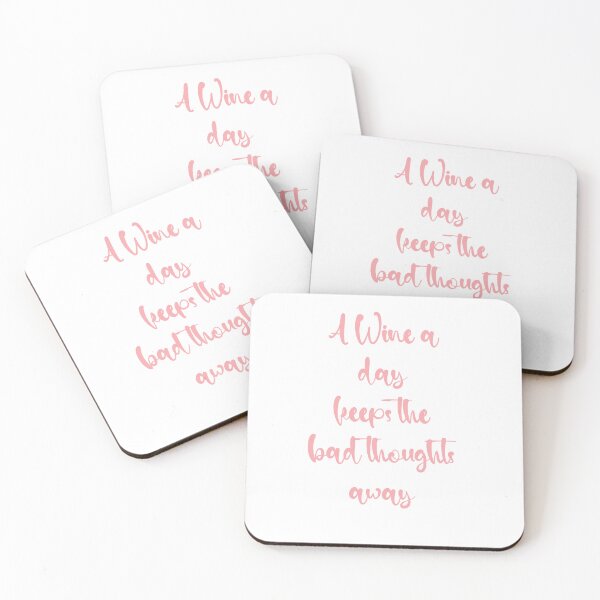 A Wine a
day
keeps the
A Wine a
day
keeps the
bad thoughts
A Wine a
day
keeps the
bad thoughts
away
A Wine a
day
keeps the
bad thoughts
away